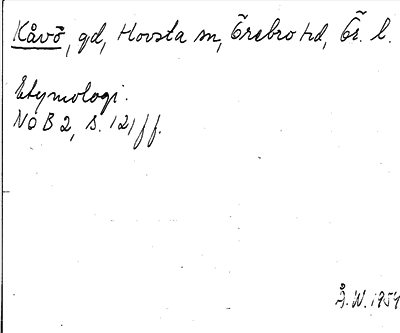 Kåvö, gd, Hovsta sn, Örebro hd, Ör. l.
Etymologi.
NoB 2, s. 121 ff.
Å.W. 1954